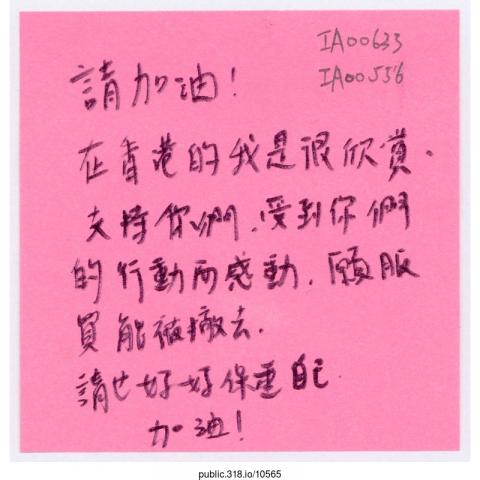 IA00633
IA00556
請加油！
在香港的我是很欣賞.
支持你們.受到你們
的行動而感動.願服
買能被撤去.
請也好好保重自己.
加油！
public.318.io/10565